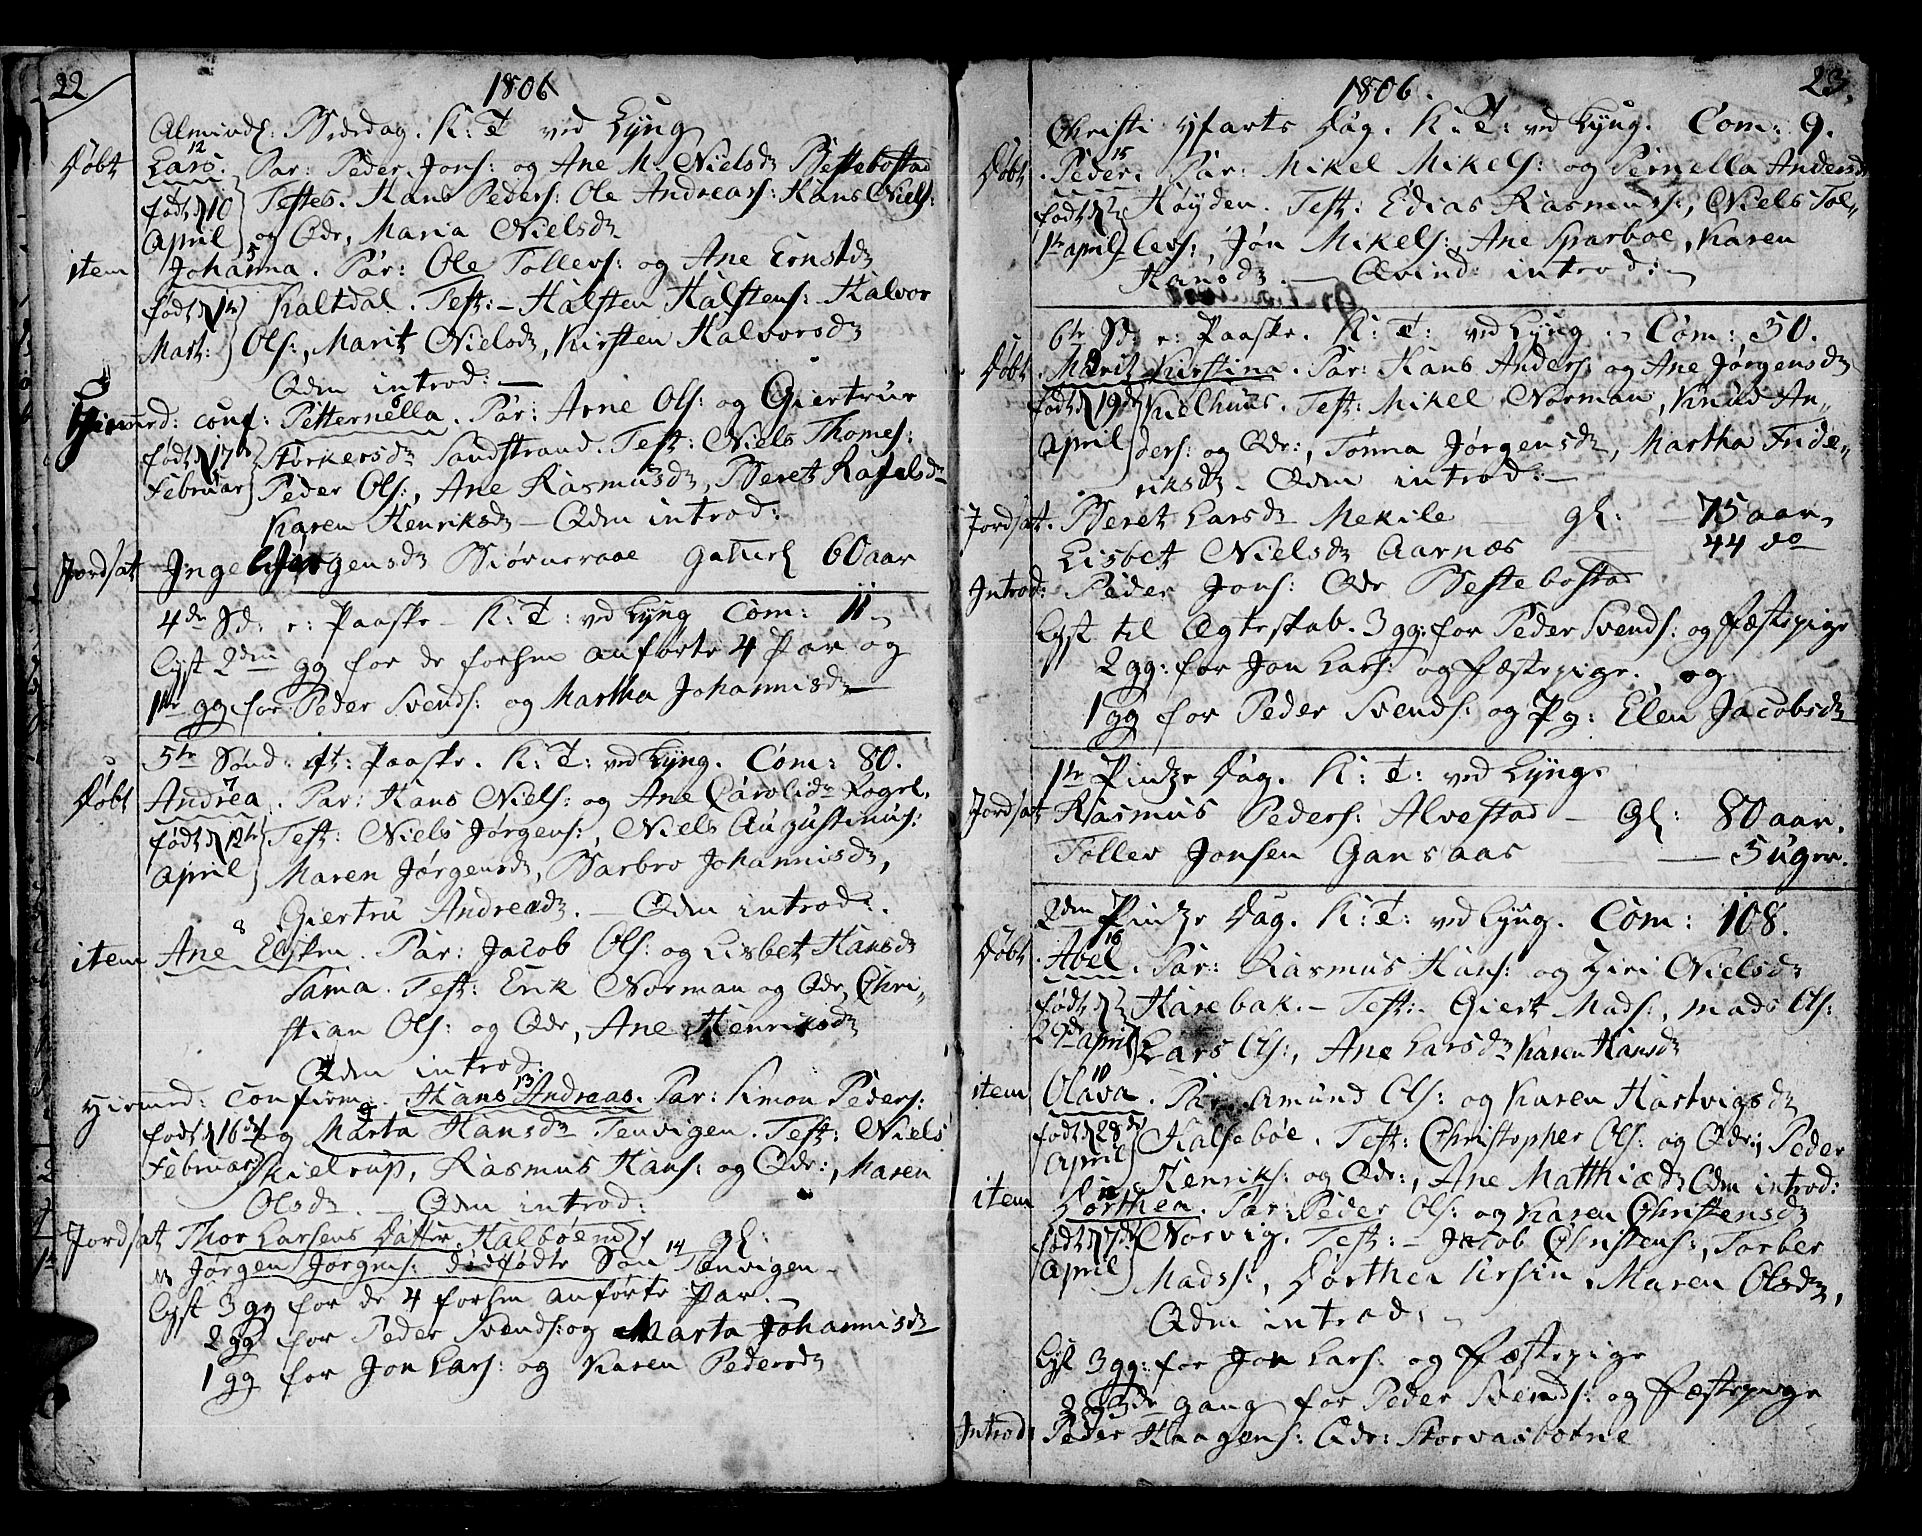 22
1806
Almindl: Bededag. K: T ved Lyng
12
Døbt Lars. Par: Peder Jons: og Ane M. Nielsdr Bessebostad
født d 10 Testes. Hans Peders: Ole Andreass: Hans Niels:
April og Qdr, Maria Nielsdr
5
item Johanna. Par: Ole Tollevs: og Ane Ernstdr
født d 1te Kaltdal. Test:- Halsten Halstens: Halvor
Mart: Ols:, Marit Nielsdr, Kirsten Halvorsdr
Qdm introd:
6
Hiemed: conf: Petternella. Par: Arne Ols: og Giertrur
født d 17de Størkersdr Sandstrand. Test: Niels Thomes:
Februar Peder Ols:, Ane Rasmusdr, Beret Rafelsdr
Karen Henriksdr - Qdm introd:
Jordsat Ingebor Jørgensdr Biørneraae gammel 60 aar
4de Sd: e: Paaske - K: T: ved Lyng Com: 11
Lyst 2den gg for de forhen anførte 4 Par og
1te gg for Peder Svends: og Martha Johannisdr
5te Sønd: eft: Paaske. K: T: ved Lyng. Com: 80.
7
Døbt Andrea. Par: Hans Niels: og Ane Carolidr Rogel.
født d 12te Test: Niels Jørgens:, Niels Augustinus:
April Maren Jørgensdr, Barbro Johannisdr,
Giertru Andreadr. - Qdm introd:
8
item Ane Elsken. Par: Jacob Ols: og Lisbet Hansdr
Sama. Test: Erik Norman og Qdr, Chri-
stian Ols: og Qdr, Ane Henriksdr
Qdm introd:
13
Hiemed: confirm. Hans Andreas. Par: Simon Peders:
9
født d 16de og Marta Hansdr Tenvigen. Test: Niels
Februar Skielrup, Rasmus Hans: og Qdr:, Maren
Olsdr. - Qdm introd:
Jordsat Thor Larsens Datter Halbøem gl:
14
Jørgen Jørgens: dødfødte Søn Tenvigen
Lyst 3 gg for de 4 forhen anførte Par.
2 gg for Peder Svends: og Marta Johannisdr
1 gg for Jon Lars: og Karen Pedersdr
23.
1806.
Christi Hfarts Dag. K: T: ved Lyng. Com: 9.
15
Døbt. Peder. Par: Mikel Mikels: og Pernella Andersdr
født d Høyden. Test: Edias Rasmus:, Niels Tol-
1te april levs:, Jon Mikels:, Ane Sparboe, Karen
Hansdr. - Qvind: introd:
6te Sd: e: Paaske. K: T: ved Lyng. Com: 50.
9
Døbt. Marit Kirstina. Par: Hans Anders: og Ane Jørgensdr
født d 19de Kielhuus. Test: Mikel Norman, Knud An-
April ders: og Qdr:, Tonna Jørgensdr, Martha Fride-
riksdr - Qdm introd:
Jordsat. Beret Larsdr Mekile gl: 75 aar,
Lisbet Nielsdr Aarnæs 44 do
Introd: Peder Jons: Qdr Bessebostad
Lyst til Ægteskab. 3 gg: for Peder Svends: og Fæstepige
2 gg: for Jon Lars: og Fæstepige. og
1 gg for Peder Svends: og Pg: Elen Jacobsdr
1te Pintze Dag. K: T: ved Lyng.
Jordsat Rasmus Peders: Alvestad - gl: 80 aar.
Tollev Jonsen Gansaas 5 uger.
2den Pintze Dag. K: T: ved Lyng. Com: 108.
16
Døbt. Abel. Par: Rasmus Hans: og Ziri Nielsdr
født d Harebak. - Test: Giert Mads:, Mads Ols:
29de april Lars Ols:, Ane Larsdr Karen Hansdr
10
item Olava. Par: Amund Ols: og Karen Hartvigsdr
født d 28de Halsebøe. Test: Christopher Ols: og Qdr:, Peder
April Henriks: og Qdr:, Ane Matthiædr Qdm introd:
11
item Dorthea. Par: Peder Ols: og Karen Christensdr
født d 7de Norvig. Test: - Jacob Christens:, Torber
April Mads:, Dorthea Ursin, Maren Olsdr,
Qdm introd:
Lyst 3 gg: for Jon Lars: og Fæstepige
2 og 3de gang for Peder Svends: og Fæstepige
Introd: Peder Haagens: Qdr: Storvasbotne